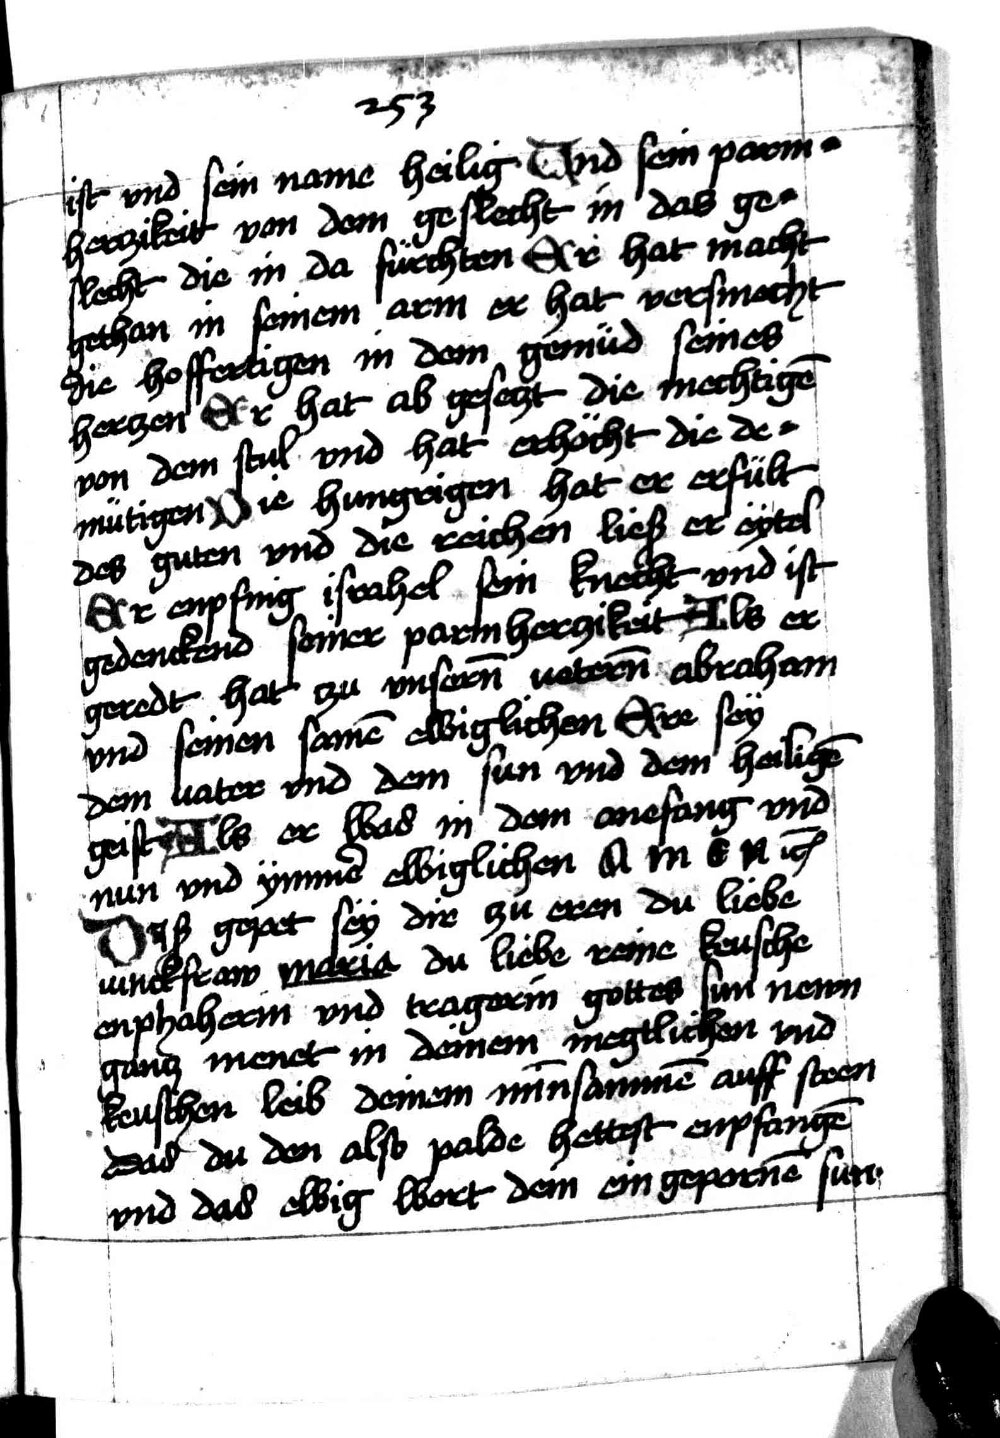 253
ist vnd sein name heilig Vnd sein parm-
herczikeit von dem geslecht in das ge-
slecht die in da fürchten Er hat macht
gethan in seinem arm er hat versmecht
die hoffertigen in dem gemüd seines
herczen Er hat ab geseczt die mechtigē
von dem stul vnd hat erhöcht die de-
mütigen Die hungrigen hat er erfült
des guten vnd die reichen ließ er eÿtel
Er enpfing israhel sein knecht vnd ist
gedenckend seiner parmherczikeit Als er
geredt hat czu vnsern̄ vatern̄ abraham
vnd seinen samē ewiglichen Ere seÿ
dem vater vnd dem sun vnd dem heiligē
geist Als er was in dem anefang vnd
nun vnd ÿmmē ewiglichen A M E N
Diß gepet seÿ dir czu eren du liebe
iunckfraw maria du liebe reine keusche
enphaherin vnd tragerin gottes sun newn
gancz menet in deinem megtlichen vnd
keuschen leib deinem mīnsammē auff steen
das du den also palde hettest enpfangē
vnd das ewig wort dein ein gepornē sun